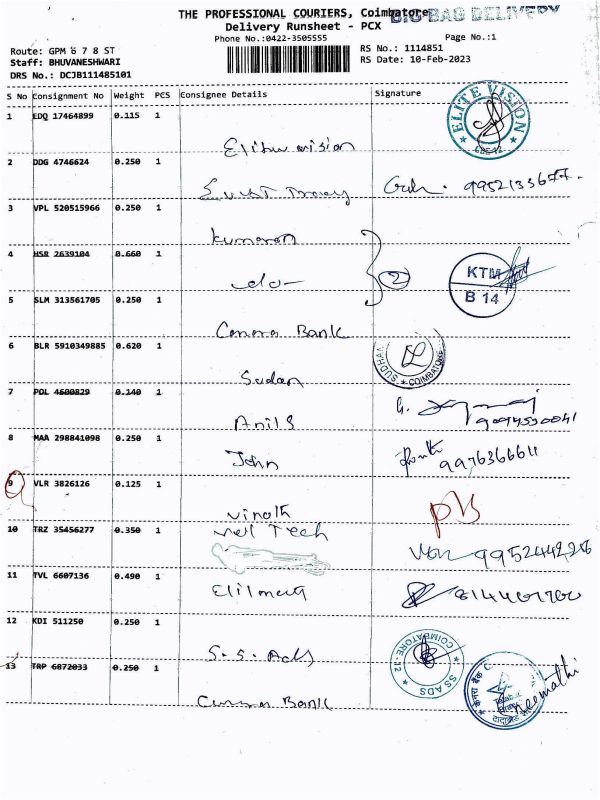 THE PROFESSIONAL COURIERS, Coimbatore
BIG BAG DELIVERY
Delivery Runsheet - PCX
Phone No.:0422-3505555
Page No.:1
Route: GPM 6 7 8 ST
RS No.: 1114851
Staff: BHUVANESHWARI
RS Date: 10-Feb-2023
DRS No.: DCJB111485101
S No Consignment No Weight PCS Consignee Details Signature
1 EDQ 17464899 0.115 1
ELITE VISION
CBE-12
2 DDG 4746624 0.250 1
3 VPL 520515966 0.250 1
Kumaran
4 HSR 2639104 0.660 1
do
2
KTM
B 14
5 SLM 313561705 0.250 1
Canara Bank
6 BLR 5910349885 0.620 1
Sudan
SUDHAV * COIMBATORE
7 POL 4600829 0.140 1
Anils
8 MAA 298841098 0.250 1
John
9976366611
9 VLR 3826126 0.125 1
Vinoth
10 TRZ 35456277 0.350 1
Vel Tech
11 TVL 6607136 0.490 1
12 KDI 511250 0.250 1
S.S. Ads
SS ADS * COIMBATORE-12
13 TRP 6872033 0.250 1
Canara Bank